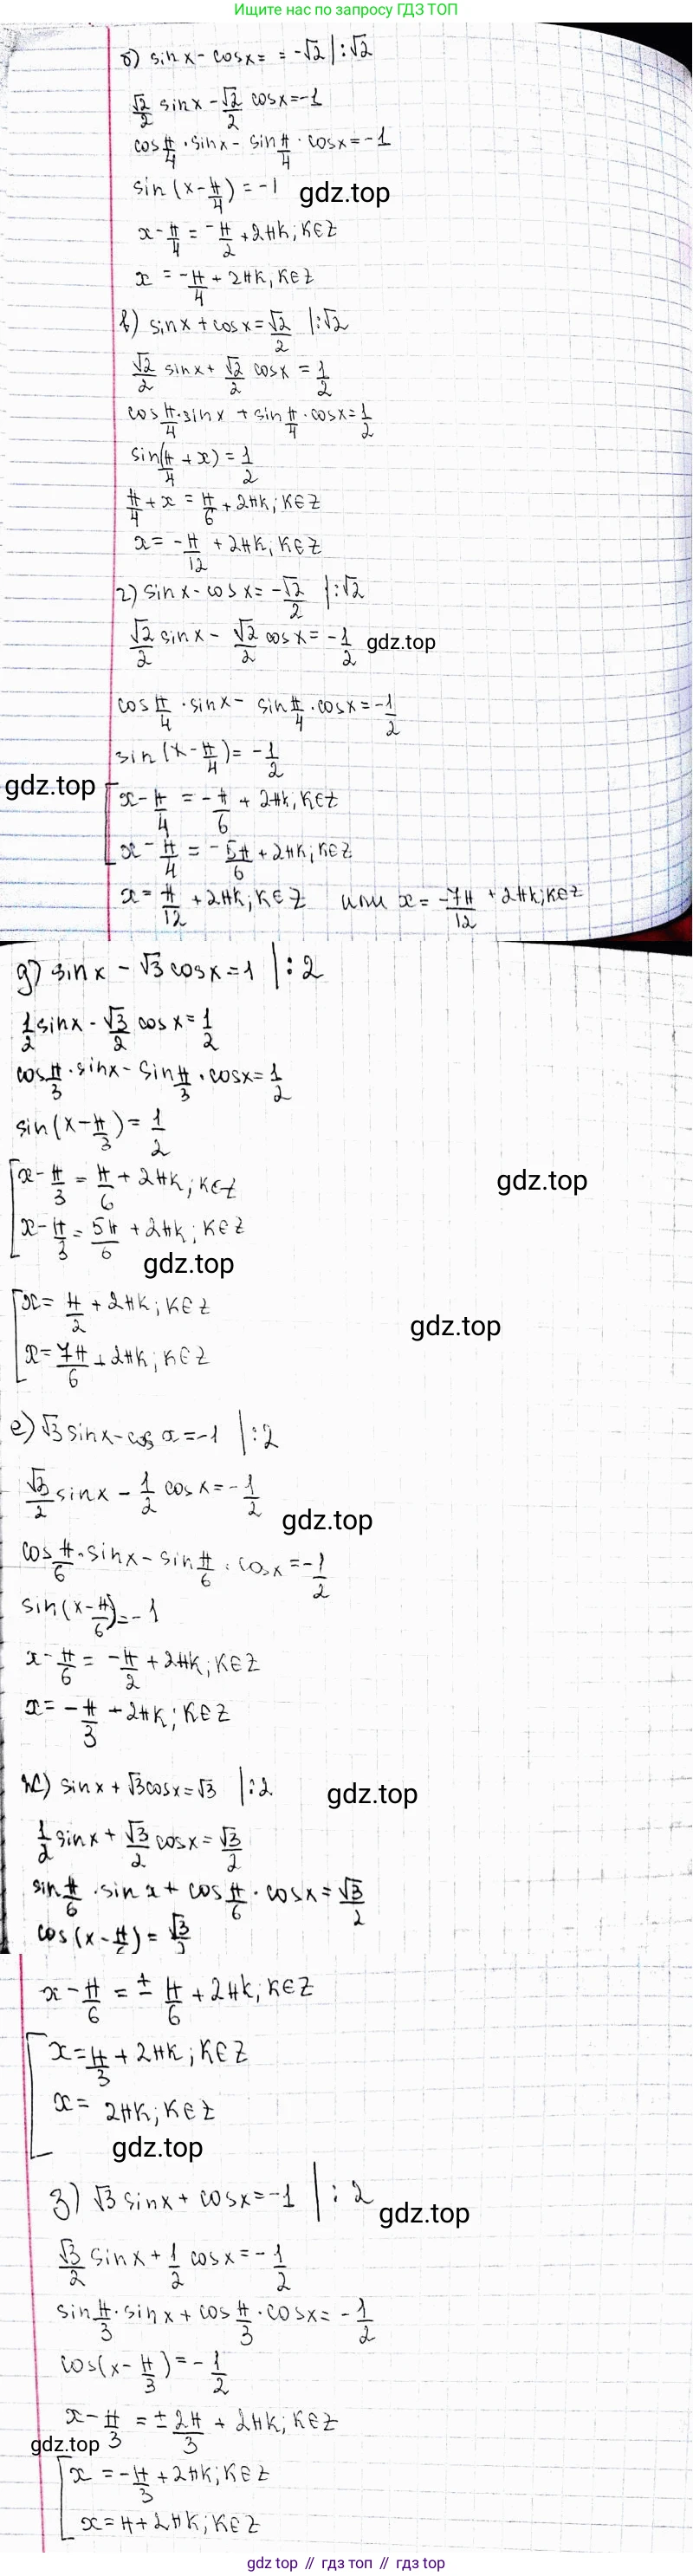 Ищите нас по запросу ГДЗ ТОП
б) sin x - cos x = = -√2 | :√2
√2/2 sin x - √2/2 cos x = -1
cos π/4 · sin x - sin π/4 · cos x = -1
sin (x - π/4) = -1
gdz.top
x - π/4 = -π/2 + 2πk; k∈Z
x = -π/4 + 2πk, k∈Z
в) sin x + cos x = √2/2 | :√2
√2/2 sin x + √2/2 cos x = 1/2
cos π/4 · sin x + sin π/4 · cos x = 1/2
sin(π/4 + x) = 1/2
π/4 + x = π/6 + 2πk; k∈Z
x = -π/12 + 2πk; k∈Z
г) sin x - cos x = -√2/2 | :√2
√2/2 sin x - √2/2 cos x = -1/2
gdz.top
cos π/4 · sin x - sin π/4 · cos x = -1/2
sin (x - π/4) = -1/2
gdz.top
x - π/4 = -π/6 + 2πk, k∈Z
x - π/4 = -5π/6 + 2πk; k∈Z
x = π/12 + 2πk; k∈Z или x = -7π/12 + 2πk; k∈Z
д) sin x - √3 cos x = 1 | : 2
1/2 sin x - √3/2 cos x = 1/2
cos π/3 · sin x - sin π/3 · cos x = 1/2
sin(x - π/3) = 1/2
x - π/3 = π/6 + 2πk; k∈Z
gdz.top
x - π/3 = 5π/6 + 2πk; k∈Z
gdz.top
x = π/2 + 2πk; k∈Z
gdz.top
x = 7π/6 + 2πk; k∈Z
е) √3 sin x - cos x = -1 | : 2
√3/2 sin x - 1/2 cos x = -1/2
gdz.top
cos π/6 · sin x - sin π/6 · cos x = -1/2
sin(x - π/6) = -1
x - π/6 = -π/2 + 2πk; k∈Z
x = -π/3 + 2πk; k∈Z
ж) sin x + √3 cos x = √3 | : 2
gdz.top
1/2 sin x + √3/2 cos x = √3/2
sin π/6 · sin x + cos π/6 · cos x = √3/2
cos(x - π/6) = √3/2
x - π/6 = ± π/6 + 2πk; k∈Z
x = π/3 + 2πk; k∈Z
x = 2πk; k∈Z
gdz.top
з) √3 sin x + cos x = -1 | : 2
gdz.top
√3/2 sin x + 1/2 cos x = -1/2
sin π/3 · sin x + cos π/3 · cos x = -1/2
cos(x - π/3) = -1/2
x - π/3 = ± 2π/3 + 2πk; k∈Z
gdz.top
x = -π/3 + 2πk; k∈Z
x = π + 2πk; k∈Z
gdz top // гдз топ // gdz top